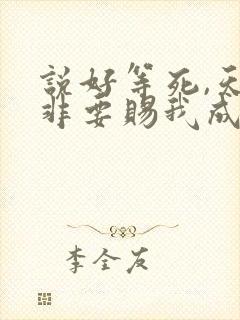 説好等死,天
非要賜我成
李全友